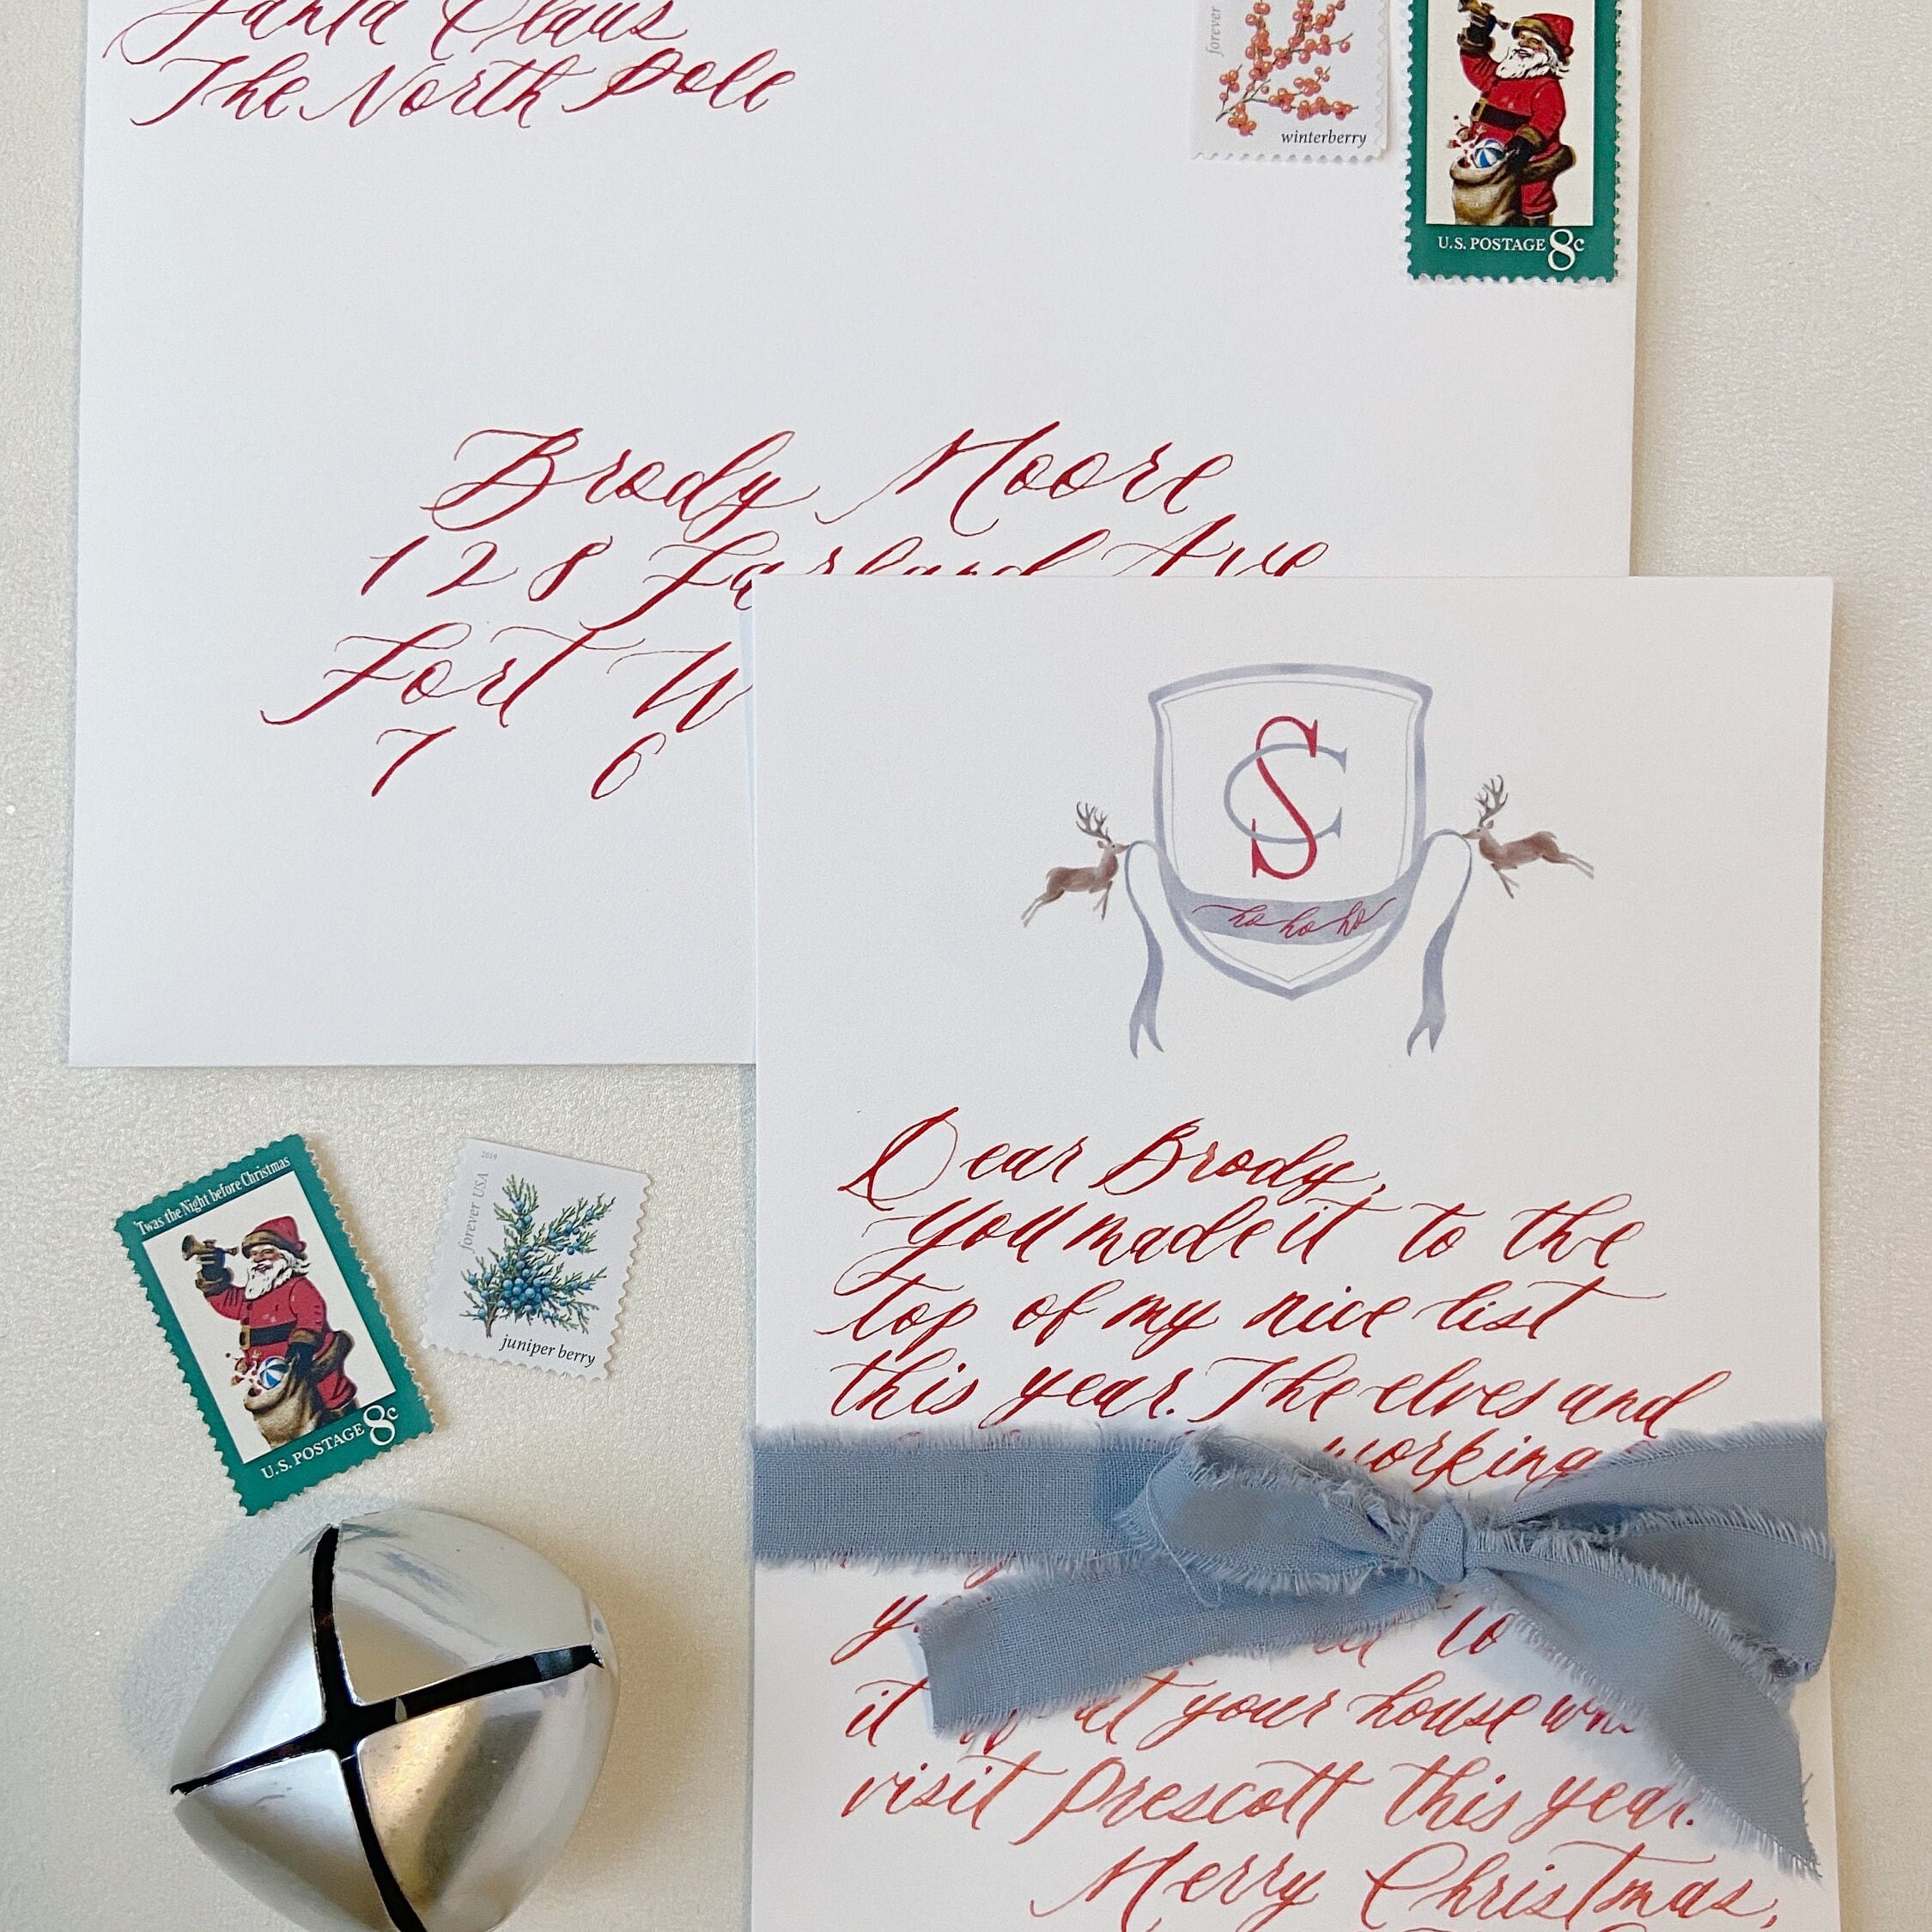 Santa Claus
The North Pole
forever
winterberry
U.S. POSTAGE 8c
Brody Moore
128 Farland Ave
Fort W
7 6
SC
ho ho ho
Dear Brody,
you made it to the
top of my nice list
this year. The elves and
working
to
it at your house
visit Prescott this year.
Merry Christmas,
'Twas the Night before Christmas
U.S. POSTAGE 8c
2019
forever USA
juniper berry